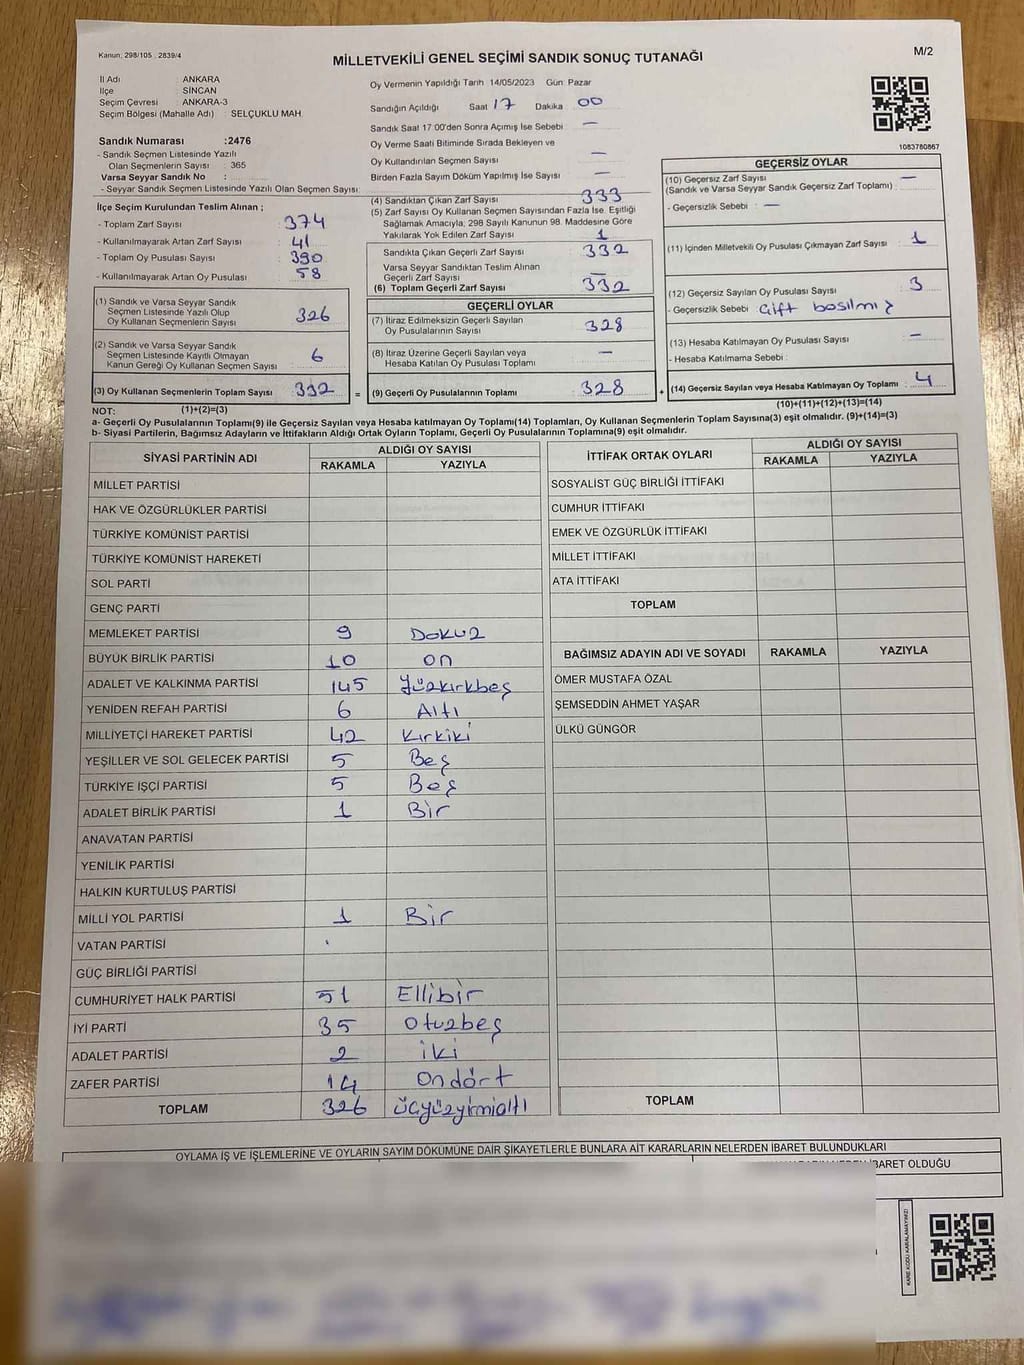 Kanun: 298/105 , 2839/4
MİLLETVEKİLİ GENEL SEÇİMİ SANDIK SONUÇ TUTANAĞI
M/2
İl Adı : ANKARA
İlçe : SİNCAN
Seçim Çevresi : ANKARA-3
Seçim Bölgesi (Mahalle Adı) : SELÇUKLU MAH.
Sandık Numarası :2476
- Sandık Seçmen Listesinde Yazılı
Olan Seçmenlerin Sayısı : 365
Varsa Seyyar Sandık No :
- Seyyar Sandık Seçmen Listesinde Yazılı Olan Seçmen Sayısı:
Oy Vermenin Yapıldığı Tarih 14/05/2023 Gün: Pazar
Sandığın Açıldığı Saat 17 Dakika 00
Sandık Saat 17:00'den Sonra Açılmış İse Sebebi —
Oy Verme Saati Bitiminde Sırada Bekleyen ve
Oy Kullandırılan Seçmen Sayısı —
Birden Fazla Sayım Döküm Yapılmış İse Sayısı —
1083780867
İlçe Seçim Kurulundan Teslim Alınan ;
- Toplam Zarf Sayısı : 374
- Kullanılmayarak Artan Zarf Sayısı : 41
- Toplam Oy Pusulası Sayısı : 390
- Kullanılmayarak Artan Oy Pusulası : 58
(1) Sandık ve Varsa Seyyar Sandık
Seçmen Listesinde Yazılı Olup
Oy Kullanan Seçmenlerin Sayısı : 326
(2) Sandık ve Varsa Seyyar Sandık
Seçmen Listesinde Kayıtlı Olmayan
Kanun Gereği Oy Kullanan Seçmen Sayısı : 6
(3) Oy Kullanan Seçmenlerin Toplam Sayısı : 332 =
(4) Sandıktan Çıkan Zarf Sayısı : 333
(5) Zarf Sayısı Oy Kullanan Seçmen Sayısından Fazla İse, Eşitliği
Sağlamak Amacıyla, 298 Sayılı Kanunun 98. Maddesine Göre
Yakılarak Yok Edilen Zarf Sayısı : 1
Sandıkta Çıkan Geçerli Zarf Sayısı : 332
Varsa Seyyar Sandıktan Teslim Alınan
Geçerli Zarf Sayısı : —
(6) Toplam Geçerli Zarf Sayısı : 332
GEÇERLİ OYLAR
(7) İtiraz Edilmeksizin Geçerli Sayılan
Oy Pusulalarının Sayısı : 328
(8) İtiraz Üzerine Geçerli Sayılan veya
Hesaba Katılan Oy Pusulası Toplamı : —
(9) Geçerli Oy Pusulalarının Toplamı : 328 +
GEÇERSİZ OYLAR
(10) Geçersiz Zarf Sayısı
(Sandık ve Varsa Seyyar Sandık Geçersiz Zarf Toplamı) :
- Geçersizlik Sebebi : —
(11) İçinden Milletvekili Oy Pusulası Çıkmayan Zarf Sayısı : 1
(12) Geçersiz Sayılan Oy Pusulası Sayısı : 3
- Geçersizlik Sebebi : Çift basılmış
(13) Hesaba Katılmayan Oy Pusulası Sayısı : —
- Hesaba Katılmama Sebebi :
(14) Geçersiz Sayılan veya Hesaba Katılmayan Oy Toplamı : 4
(10)+(11)+(12)+(13)=(14)
NOT: (1)+(2)=(3)
a- Geçerli Oy Pusulalarının Toplamı(9) ile Geçersiz Sayılan veya Hesaba katılmayan Oy Toplamı(14) Toplamları, Oy Kullanan Seçmenlerin Toplam Sayısına(3) eşit olmalıdır. (9)+(14)=(3)
b- Siyasi Partilerin, Bağımsız Adayların ve İttifakların Aldığı Ortak Oyların Toplamı, Geçerli Oy Pusulalarının Toplamına(9) eşit olmalıdır.
SİYASİ PARTİNİN ADI ALDIĞI OY SAYISI
RAKAMLA YAZIYLA
MİLLET PARTİSİ
HAK VE ÖZGÜRLÜKLER PARTİSİ
TÜRKİYE KOMÜNİST PARTİSİ
TÜRKİYE KOMÜNİST HAREKETİ
SOL PARTİ
GENÇ PARTİ
MEMLEKET PARTİSİ 9 Dokuz
BÜYÜK BİRLİK PARTİSİ 10 on
ADALET VE KALKINMA PARTİSİ 145 Yüzkırkbeş
YENİDEN REFAH PARTİSİ 6 Altı
MİLLİYETÇİ HAREKET PARTİSİ 42 Kırkiki
YEŞİLLER VE SOL GELECEK PARTİSİ 5 Beş
TÜRKİYE İŞÇİ PARTİSİ 5 Beş
ADALET BİRLİK PARTİSİ 1 Bir
ANAVATAN PARTİSİ
YENİLİK PARTİSİ
HALKIN KURTULUŞ PARTİSİ
MİLLİ YOL PARTİSİ 1 Bir
VATAN PARTİSİ
GÜÇ BİRLİĞİ PARTİSİ
CUMHURİYET HALK PARTİSİ 51 Ellibir
İYİ PARTİ 35 Otuzbeş
ADALET PARTİSİ 2 iki
ZAFER PARTİSİ 14 Ondört
TOPLAM 326 üçyüzyirmialtı
İTTİFAK ORTAK OYLARI ALDIĞI OY SAYISI
RAKAMLA YAZIYLA
SOSYALİST GÜÇ BİRLİĞİ İTTİFAKI
CUMHUR İTTİFAKI
EMEK VE ÖZGÜRLÜK İTTİFAKI
MİLLET İTTİFAKI
ATA İTTİFAKI
TOPLAM
BAĞIMSIZ ADAYIN ADI VE SOYADI RAKAMLA YAZIYLA
ÖMER MUSTAFA ÖZAL
ŞEMSEDDİN AHMET YAŞAR
ÜLKÜ GÜNGÖR
TOPLAM
OYLAMA İŞ VE İŞLEMLERİNE VE OYLARIN SAYIM DÖKÜMÜNE DAİR ŞİKAYETLERLE BUNLARA AİT KARARLARIN NELERDEN İBARET BULUNDUKLARI
İBARET OLDUĞU
KARE KODU KARALAMAYINIZ!